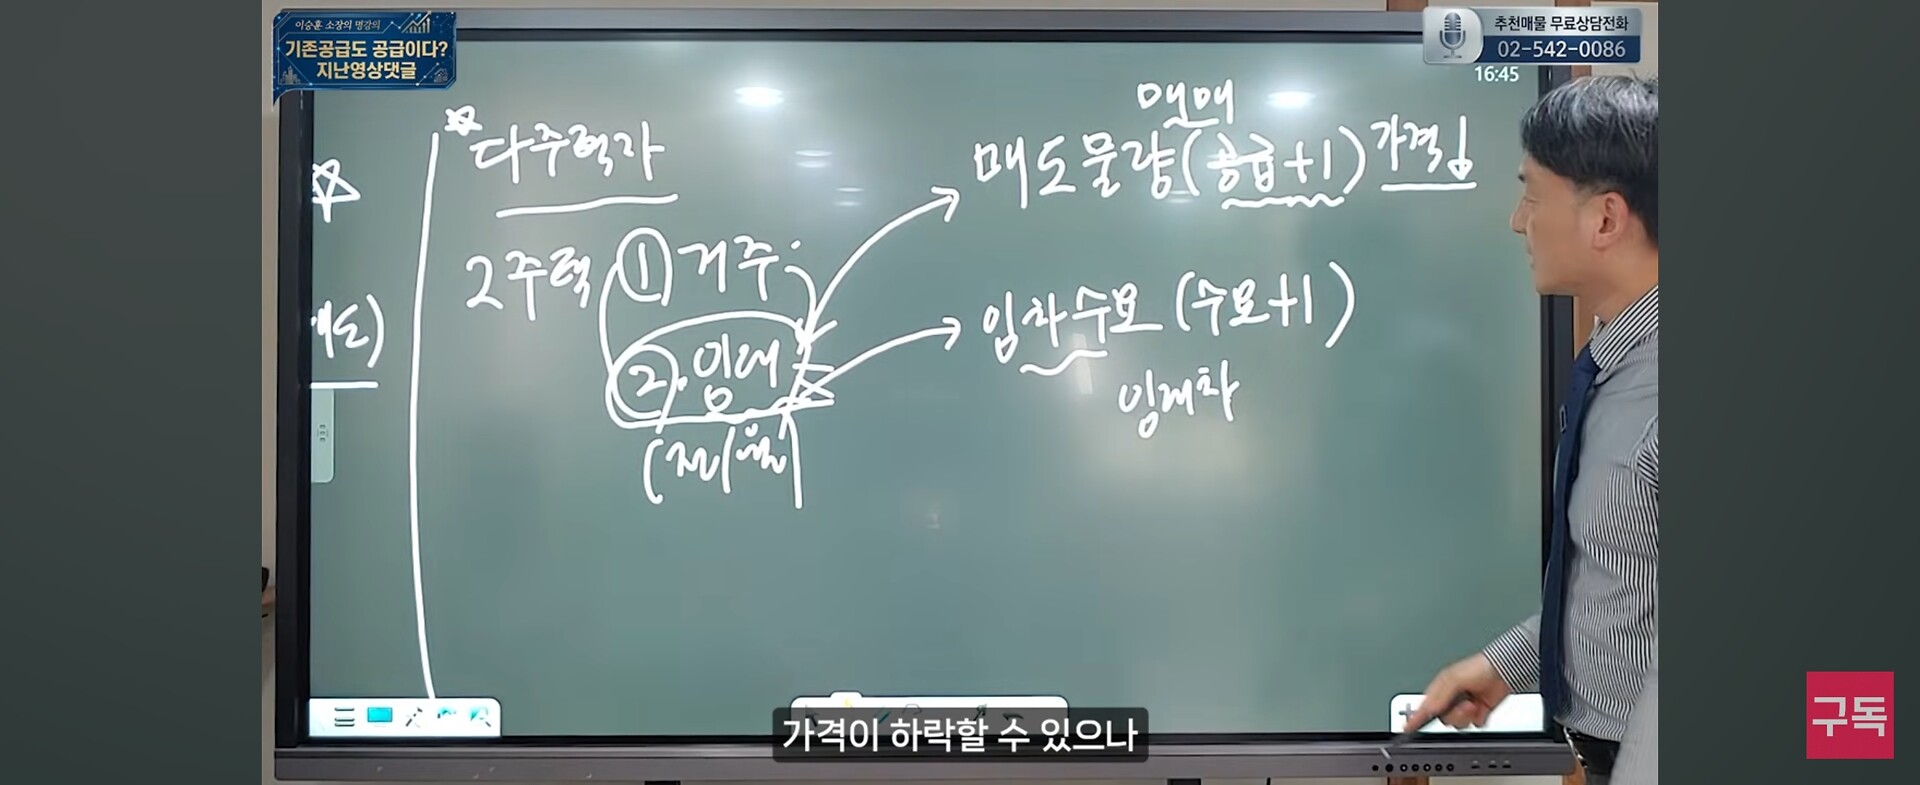 이승훈 소장의 명강의
기존공급도 공급이다?
지난영상댓글
추천매물 무료상담전화
02-542-0086
16:45
다주택자
2주택 ① 거주
② 임대
(전/월)
매매
매도물량(공급+1) 가격↓
임차수요 (수요+1)
임대차
가격이 하락할 수 있으나
구독